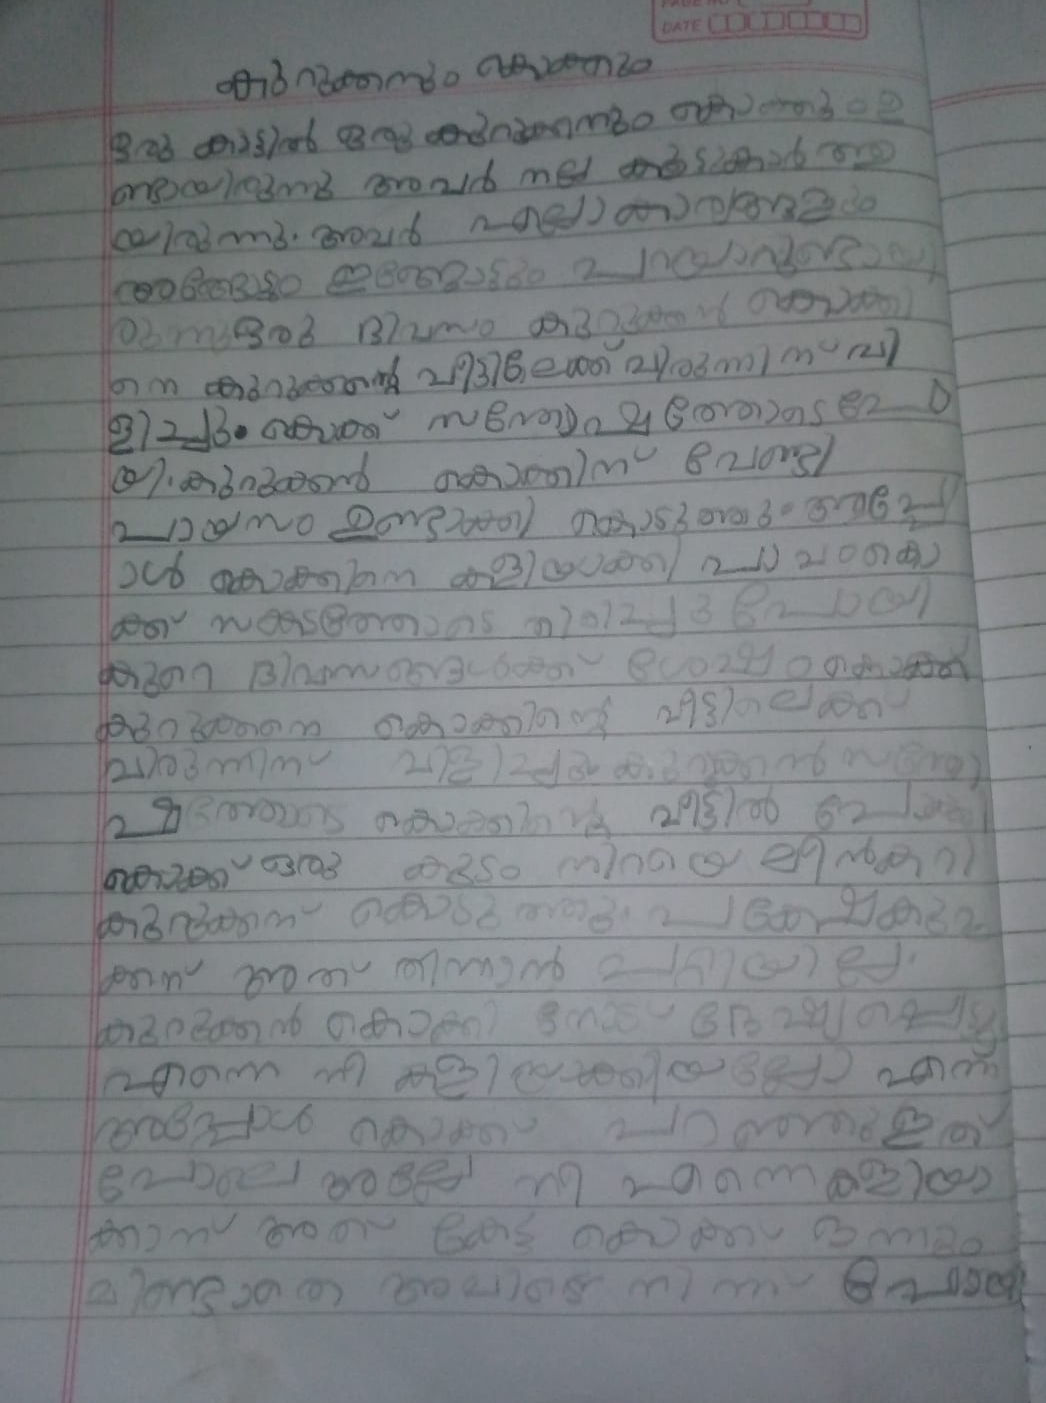 PAGE NO
DATE
കുറുക്കനും കൊക്കും
ഒരു കാട്ടിൽ ഒരു കുറുക്കനും കൊക്കും ഉ
ണ്ടായിരുന്നു അവർ നല്ല കൂട്ടുകാർ ആ
യിരുന്നു. അവർ എല്ലാ കാര്യങ്ങളും
അങ്ങോട്ടും ഇങ്ങോട്ടും പറയാറുണ്ടായി
രുന്നു ഒരു ദിവസം കുറുക്കൻ കൊക്കി
നെ കുറുക്കൻ്റെ വീട്ടിലേക്ക് വിരുന്നിന് വി
ളിച്ചു. കൊക്ക് സന്തോഷത്തോടെ പോ
യി. കുറുക്കൻ കൊക്കിന് വേണ്ടി
പായസം ഉണ്ടാക്കി കൊടുത്തു. അപ്പോ
ൾ കൊക്കിനെ കളിയാക്കി പാവം കൊ
ക്ക് സങ്കടത്തോടെ തിരിച്ചു പോയി
കുറേ ദിവസങ്ങൾക്ക് ശേഷം കൊക്ക്
കുറുക്കനെ കൊക്കിൻ്റെ വീട്ടിലേക്ക്
വിരുന്നിന് വിളിച്ചു കുറുക്കൻ സന്തോ
ഷത്തോടെ കൊക്കിൻ്റെ വീട്ടിൽ പോയി
കൊക്ക് ഒരു കുടം നിറയെ മീൻകറി
കുറുക്കന് കൊടുത്തു. പക്ഷേ കുറു
ക്കന് അത് തിന്നാൻ പറ്റിയില്ല.
കുറുക്കൻ കൊക്കി നോട് ദേഷ്യപ്പെട്ടു
എന്നെ നീ കളിയാക്കിയല്ലോ എന്ന്
അപ്പോൾ കൊക്ക് പറഞ്ഞു ഇത്
പോലെ അല്ലേ നീ എന്നെ കളിയാ
ക്കാന് അത് കേട്ട് കൊക്ക് ഒന്നും
മിണ്ടാതെ അവിടെ നിന്ന് പോയി